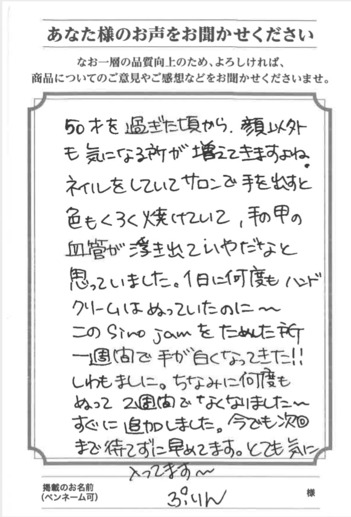 あなた様のお声をお聞かせください
なお一層の品質向上のため、よろしければ、
商品についてのご意見やご感想などをお聞かせくださいませ。
50才を過ぎた頃から、顔以外
も気になる所が増えてきますよね。
ネイルをしていてサロンで手を出すと
色もくろく焼けていて、手の甲の
血管が浮き出ていやだなと
思っていました。1日に何度もハンド
クリームはぬっていたのに〜
このSino jamをためした所
一週間で手が白くなってきた!!
しわもましに。ちなみに何度も
ぬって2週間でなくなました〜
すぐに追加しました。今でも次回
まで待てずに早めてます。とても気に
入ってます〜
掲載のお名前
(ペンネーム可)
ぷりん
様